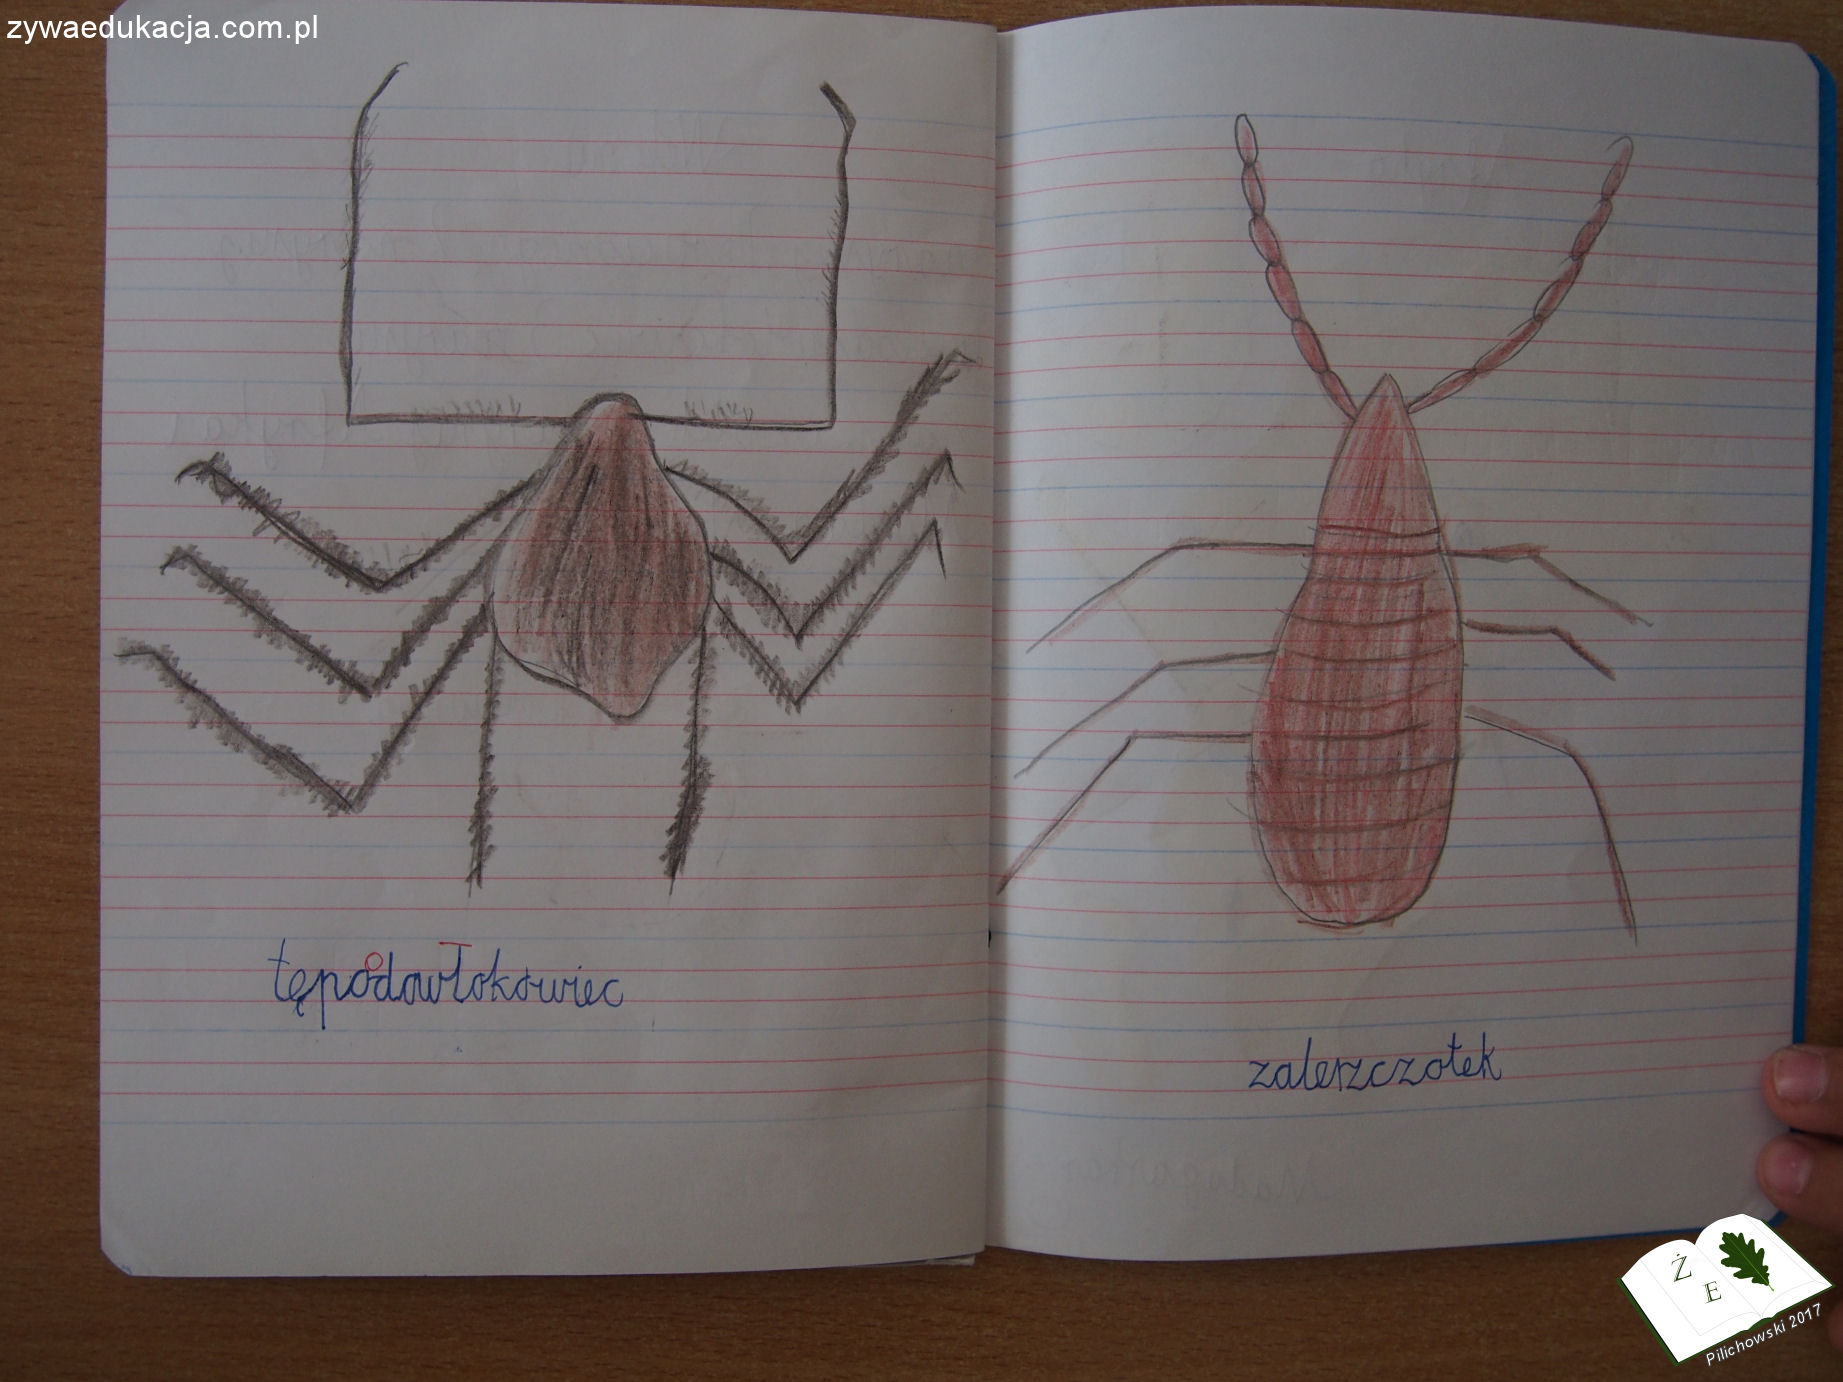 zywaedukacja.com.pl
tępodowłokowiec
zaleszczotek
Ż
E
Pilichowski 2017